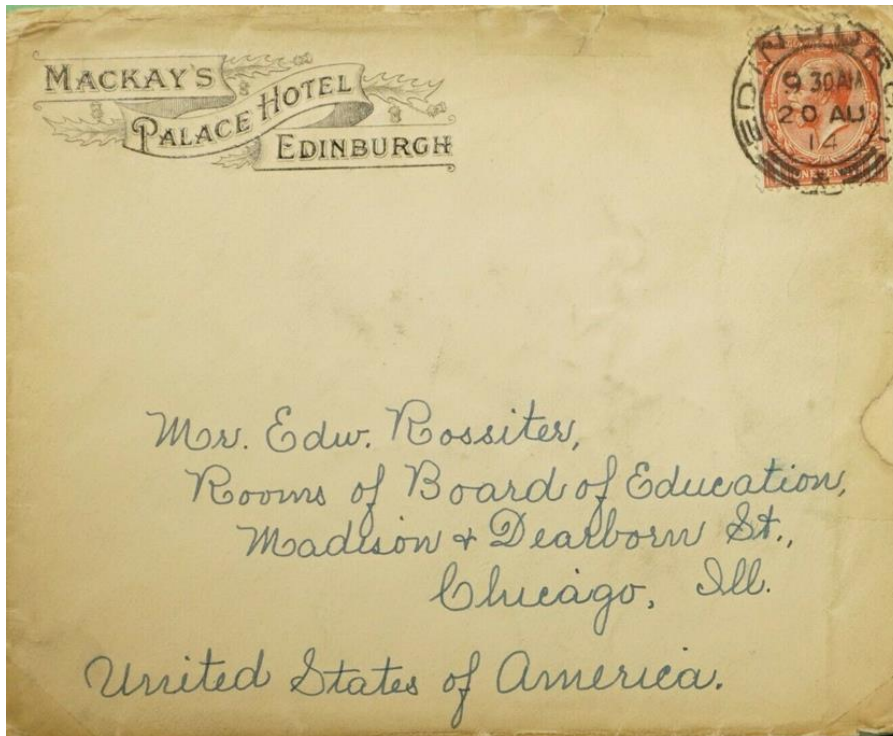 MACKAY'S
PALACE HOTEL
EDINBURGH
EDINBURGH
9 30 AM
20 AU
14
Mr. Edw. Rossiter,
Rooms of Board of Education,
Madison & Dearborn St.,
Chicago, Ill.
United States of America.